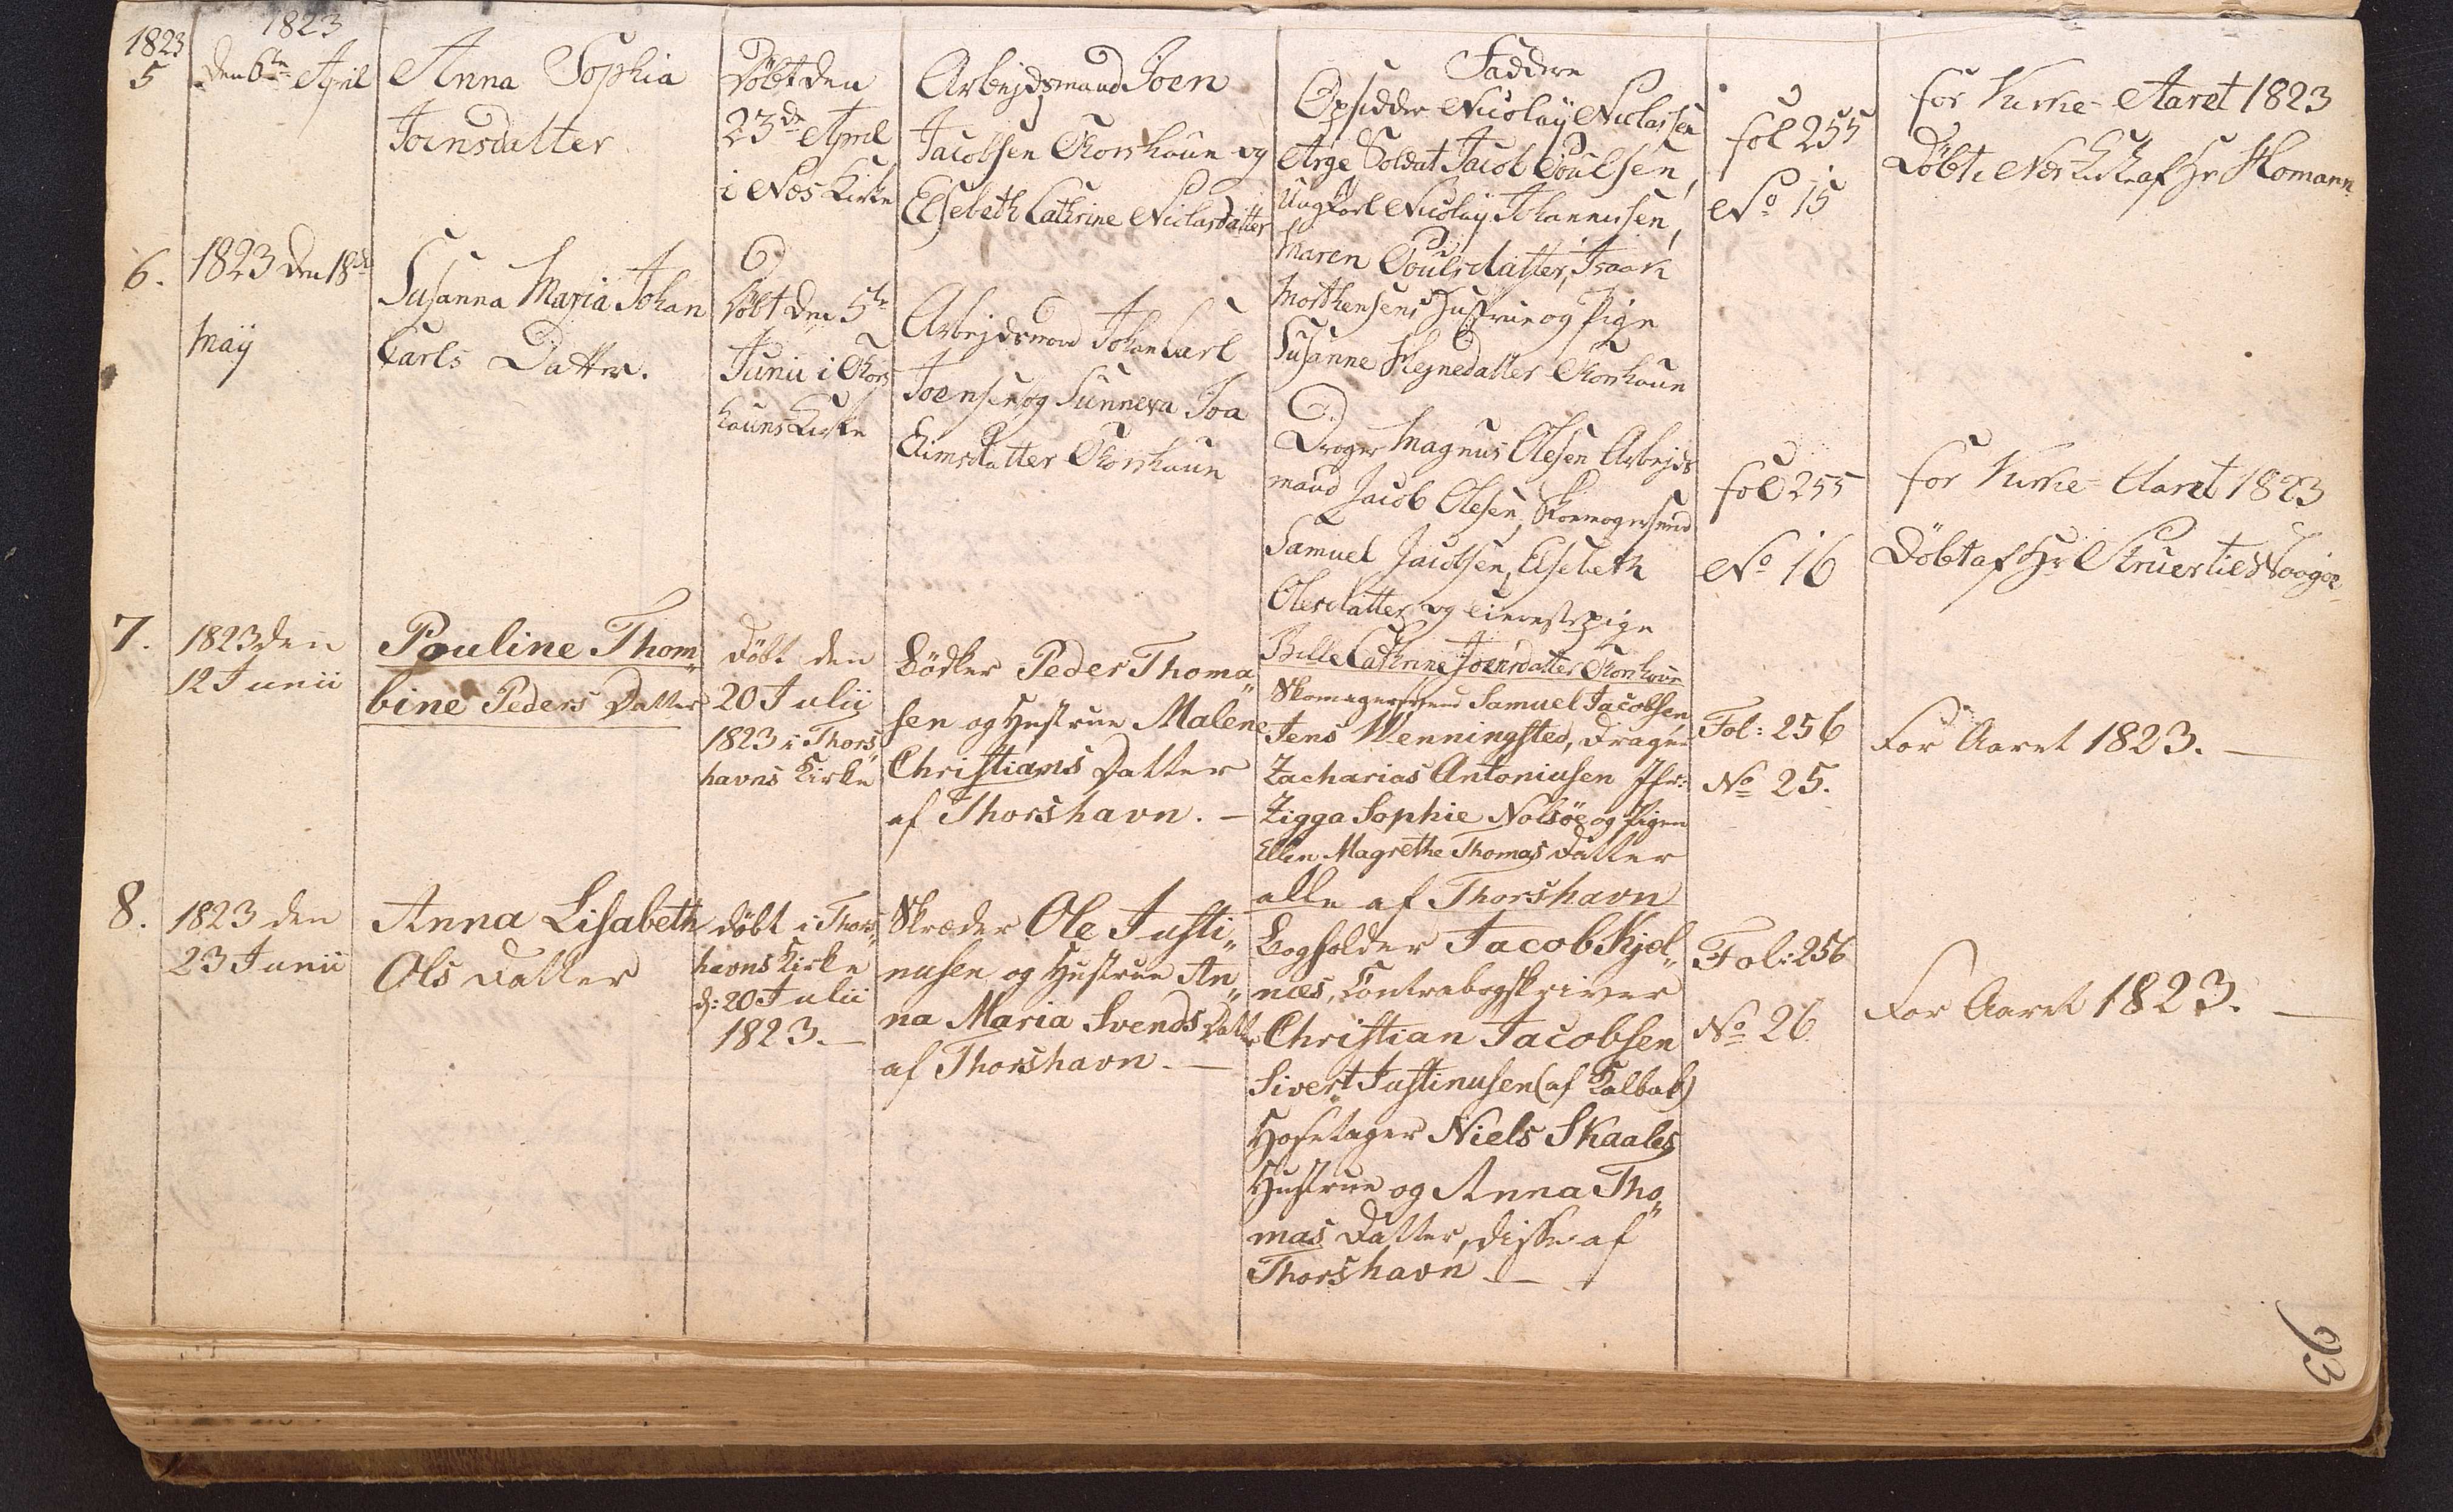 1823
5
1823
den 6te April
Anna Sophia
Joensdatter
Döbt den
23de April
i Nos Kirke
Arbejdsmand Joen
Jacobsen Thorshaun og
Elsebeth Cathrine Niclasdatter
Faddere
Opsidder Nicolaÿ Niclassen
Arge Soldat Jacob Poulsen,
Ungkarl Nicolaÿ Johannessen,
Maren Poulsdatter, Isaak
Morthensens Hustrue og Pige
Susanne Hejnedatter Thorshaun
fol 255
No 15
for Kirke-Aaret 1823
Döbt i Nos Kirke af Hr Homann
6.
1823 den 18de
Maÿ
Susanna Maria Johan
Carls Datter.
Döbt den 5te
Junii i Thors
hauns Kirke
Arbejdsmand Johan Carl
Joensen og Sunneva Joa
Kimsdatter Thorshaun
Dragon Magnus Olesen Arbejds
mand Jacob Olesen, Skoemagersvend
Samuel Jacobsen, Elsebeth
Olesdatter og tienestepige
Bille Cathrine Joensdatter Thorshaun
fol 255
No 16
for Kirke-Aaret 1823
Döbt af Hr
7.
1823 den
12 Junii
Pouline Thom„
bine Peders Datter
döbt den
20 Julii
1823 i Thors„
havns Kirke
Bödker Peder Thoma„
sen og Hustrue Malene
Christians Datter
af Thorshavn. —
Skomagersvend Samuel Jacobsen,
Jens Wenningsted, Dragon
Zacharias Antoniusen Jfr:
Zigga Sophie Nolsöe og Pigen
Ellen Magrethe Thomas Datter
alle af Thorshavn
Fol: 256
No 25.
For Aaret 1823. —
8.
1823 den
23 Junii
Anna Lisabeth
Ols Datter
döbt i Thors„
havns Kirke
d: 20 Julii
1823. —
Skræder Ole Justi„
nusen og Hustrue An„
na Maria Svends Datt
af Thorshavn. —
Bogholder Jacob Kjel„
næs, Contrabogskriver
Christian Jacobsen
Sivert Justinusen (af Kalbak)
Hosetager Niels Skaales
Hustrue og Anna Tho„
mas Datter, disse af
Thorshavn. —
Fol: 256
No 26
For Aaret 1823. —
93